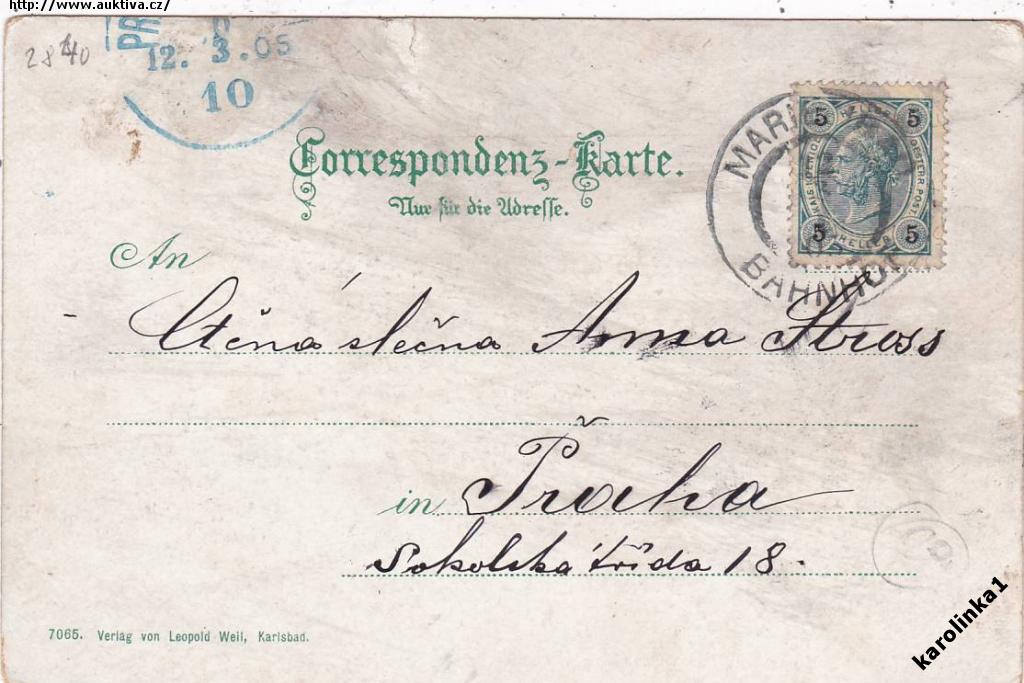 http://www.auktiva.cz/
2840
PR
12. 3. 05
10
Correspondenz-Karte.
Nur für die Adresse.
MARI
BAHNHOF
5 5
5 5
HELLER
An
Ctěná slečna Anna Stross
in Praha
Sokolská třída 18.
7065. Verlag von Leopold Weil, Karlsbad.
karolinka1